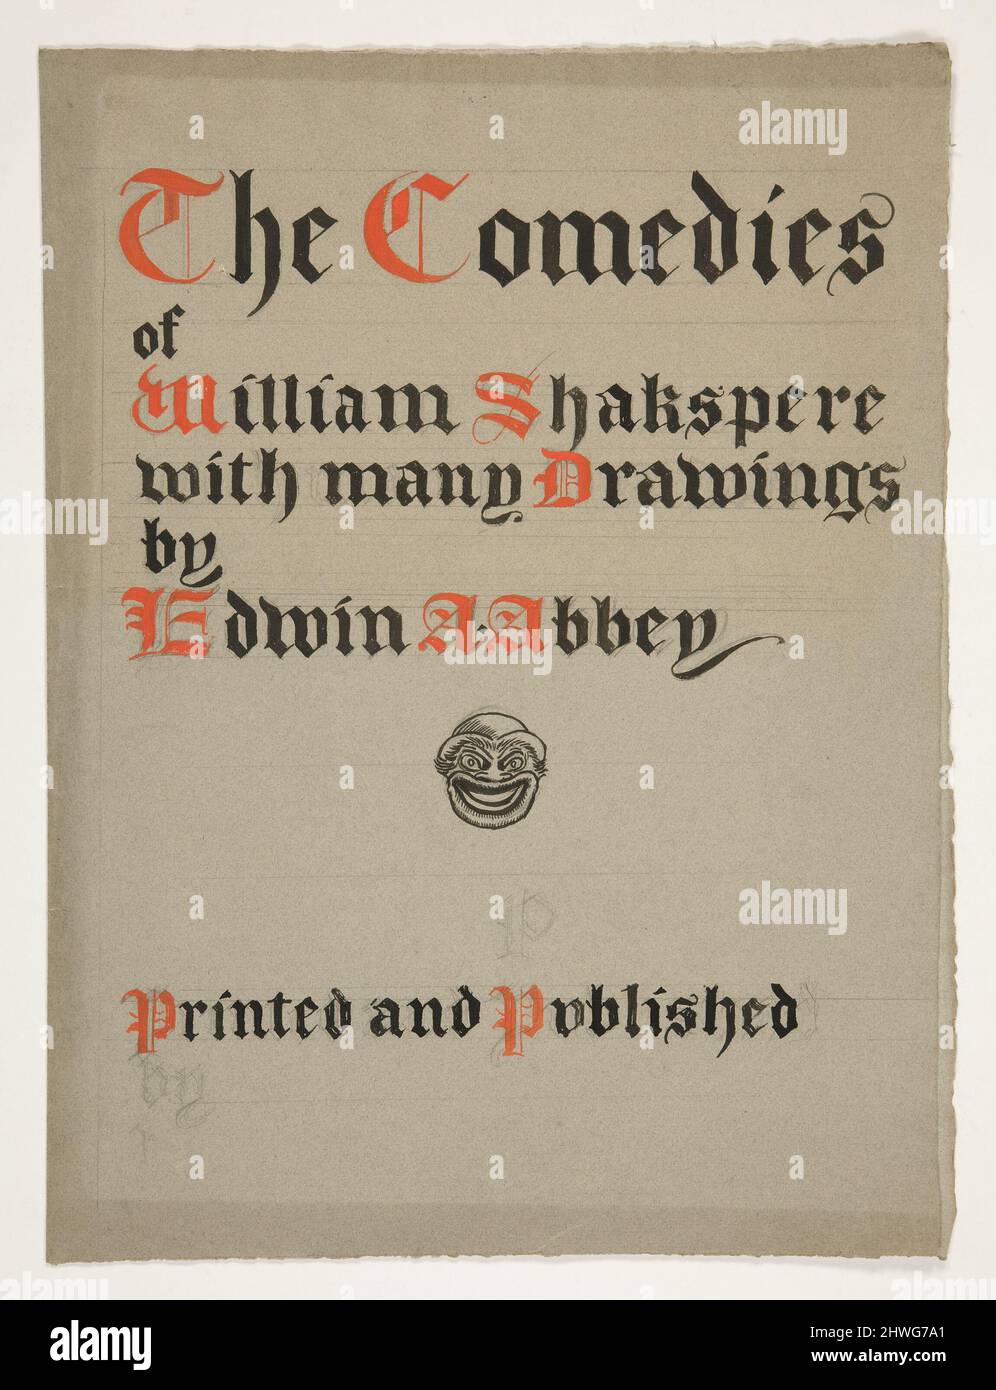 The Comedies
of
William Shakspere
with many Drawings
by
Edwin A. Abbey
P
Printed and Published
by
a
alamy
alamy
Image ID: 2HWG7A1
www.alamy.com